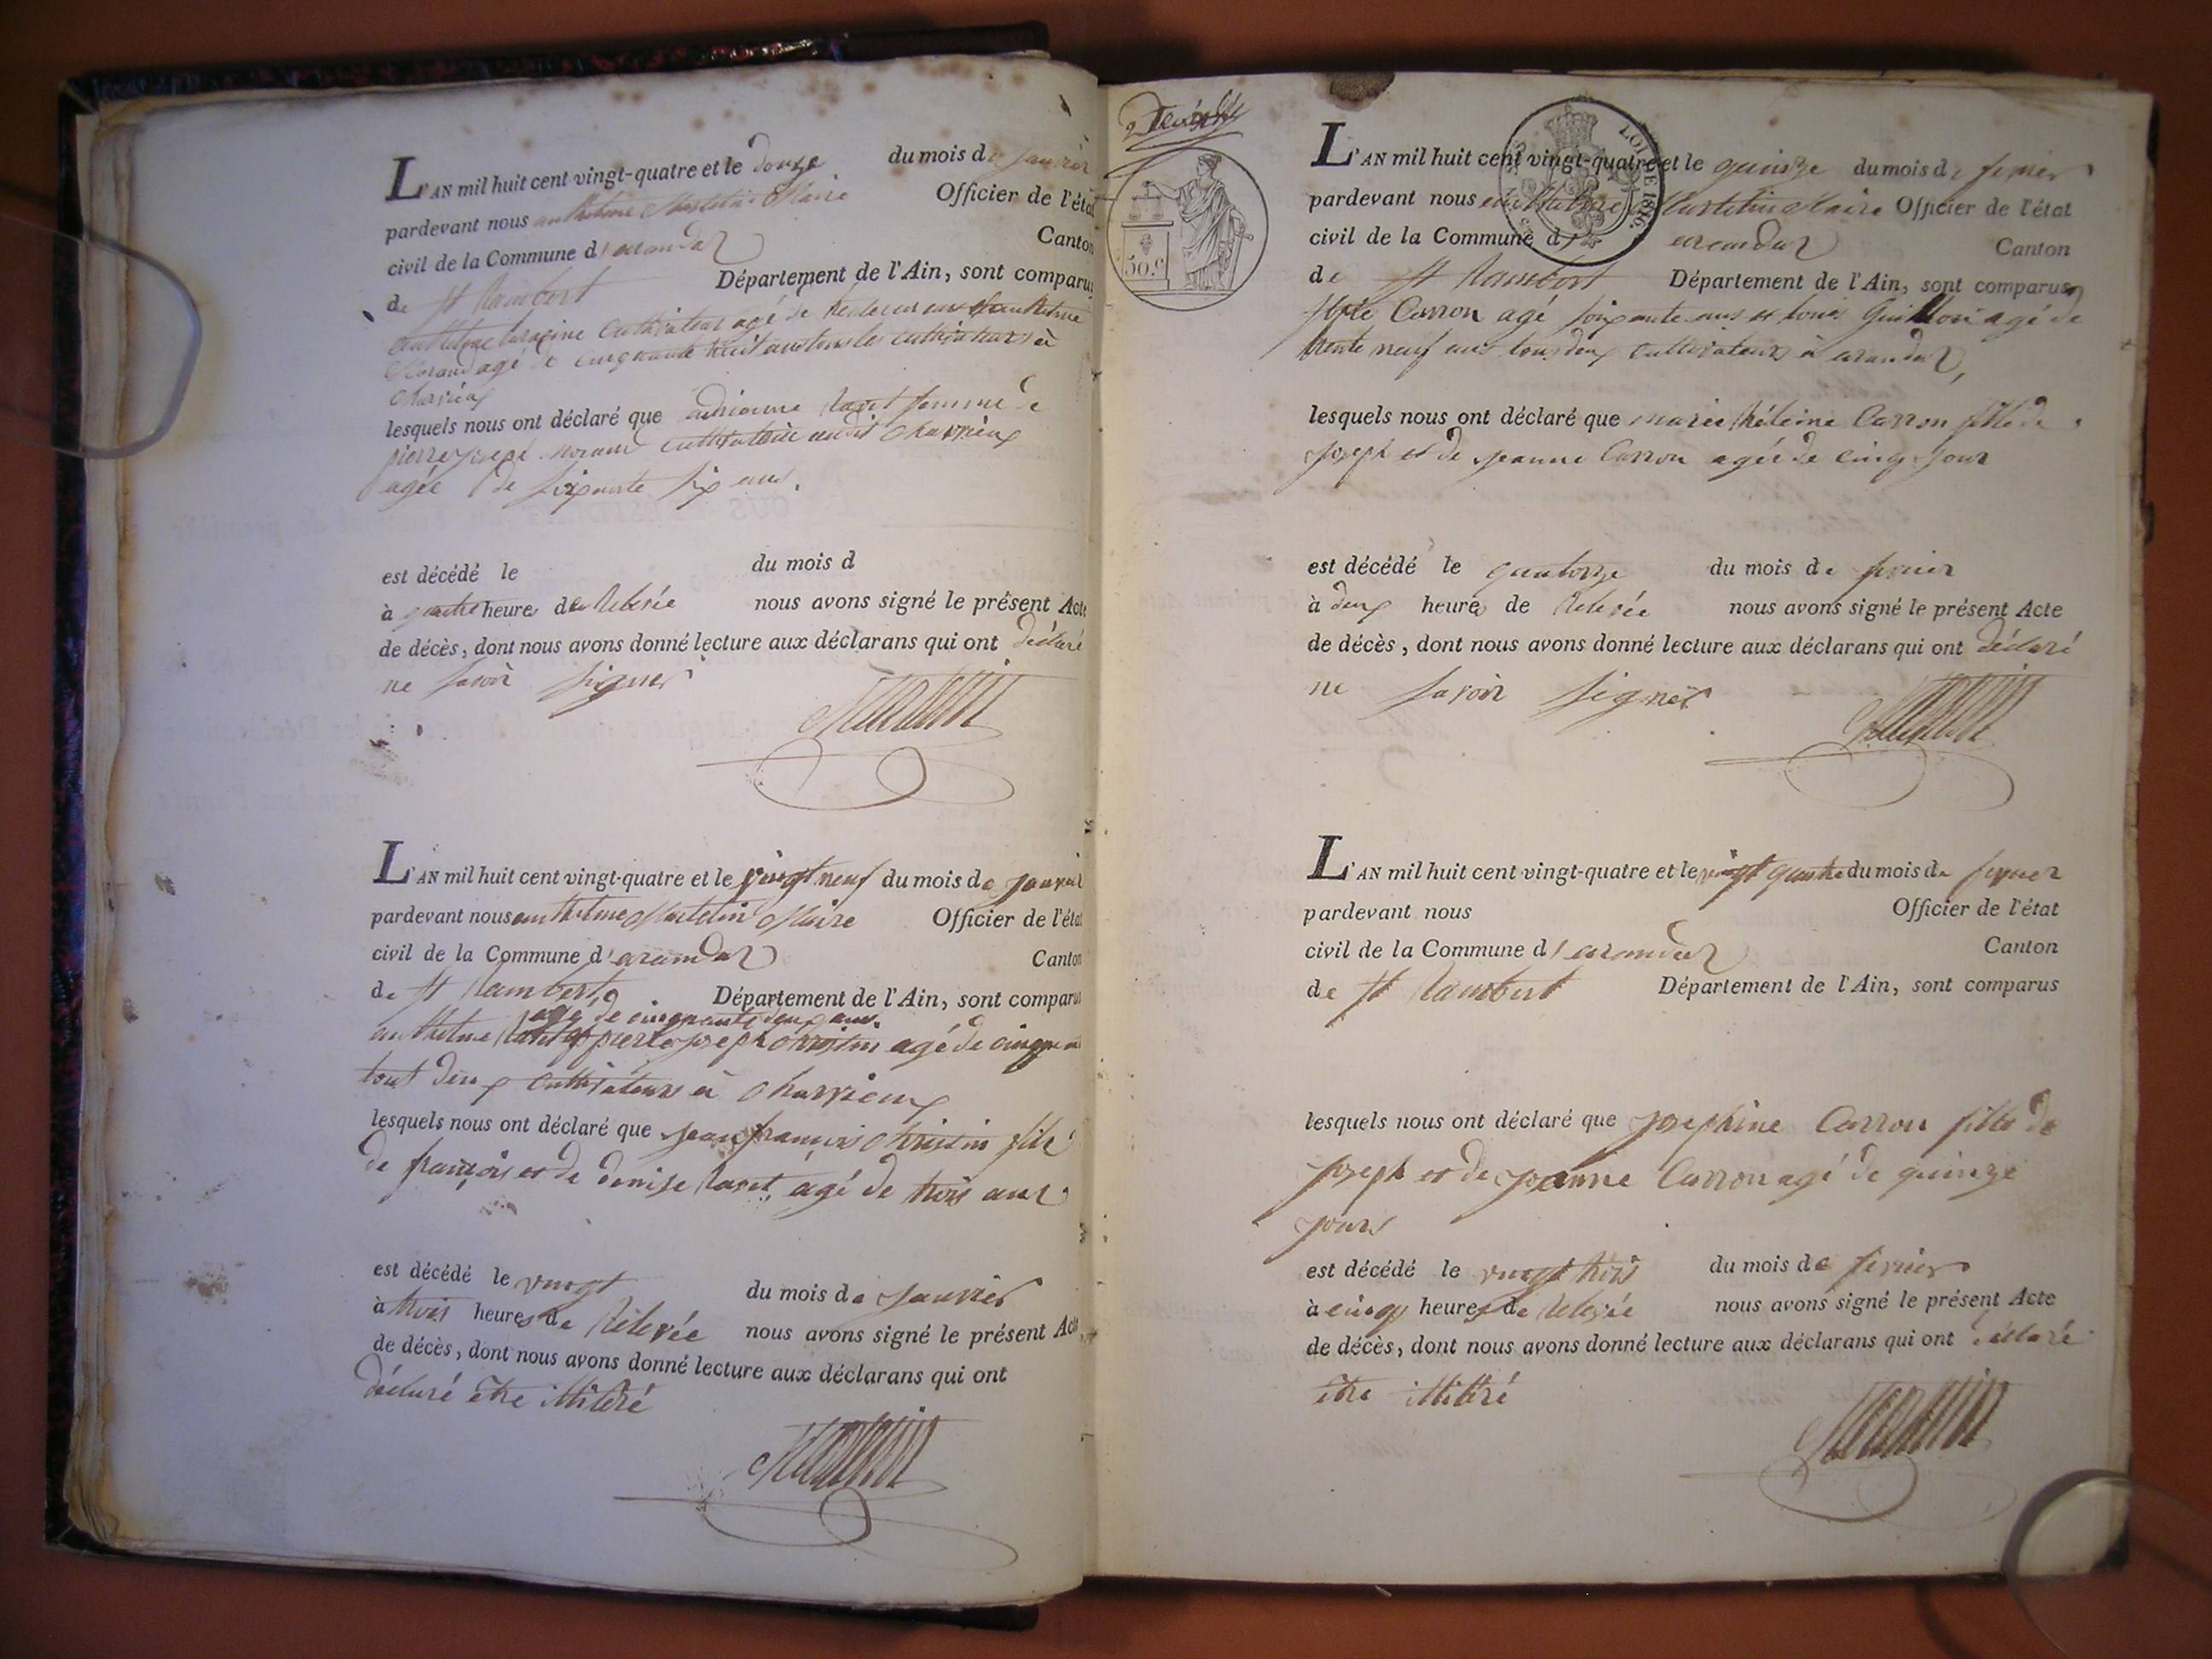 L'AN mil huit cent vingt-quatre et le douze du mois de janvier
pardevant nous anthelme Martelin Maire Officier de l'état
civil de la Commune d'arandaz Canton
de St Rambert Département de l'Ain, sont comparus
anthelme cultivateur agé de ans anthelme
Morand agé de cinquante huit ans tous les cultivateurs à
Charvieux
lesquels nous ont déclaré que adrienne Ravet femme de
pierre joseph morand cultivateur audit Charvieux
agée de soixante six ans.
est décédé le du mois d
à quatre heures de Relevée nous avons signé le présent Acte
de décès, dont nous avons donné lecture aux déclarans qui ont déclaré
ne savoir signer
L'AN mil huit cent vingt-quatre et le vingt neuf du mois de janvier
pardevant nous anthelme Martelin Maire Officier de l'état
civil de la Commune d'arandaz Canton
de St Rambert Département de l'Ain, sont comparus
agé de cinquante deux ans
anthelme Ravet et pierre joseph Christin agé de cinquante
tout deux cultivateurs à Charvieux
lesquels nous ont déclaré que jean françois Christin fils
de françois et de denise Ravet, agé de trois ans
est décédé le vingt du mois de janvier
à trois heures de Relevée nous avons signé le présent Acte
de décès, dont nous avons donné lecture aux déclarans qui ont
déclaré être illitéré
50.c
LOI DE 1816.
L'AN mil huit cent vingt-quatre et le quinze du mois de fevrier
pardevant nous anthelme Martelin Maire Officier de l'état
civil de la Commune d' arandaz Canton
de St Rambert Département de l'Ain, sont comparus
Carron agé soixante ans et louis Guillon agé de
trente neuf ans tous deux cultivateurs à arandaz,
lesquels nous ont déclaré que marie héleine Carron fille de
joseph et de jeanne Carron agée de cinq jour
est décédé le quatorze du mois de fevrier
à deux heures de Relevée nous avons signé le présent Acte
de décès, dont nous avons donné lecture aux déclarans qui ont déclaré
ne savoir signer
L'AN mil huit cent vingt-quatre et le vingt quatre du mois de fevrier
pardevant nous Officier de l'état
civil de la Commune d'arandaz Canton
de St Rambert Département de l'Ain, sont comparus
lesquels nous ont déclaré que josephine Carron fille de
joseph et de jeanne Carron agé de quinze
jours
est décédé le vingt trois du mois de fevrier
à cinq heures de Relevée nous avons signé le présent Acte
de décès, dont nous avons donné lecture aux déclarans qui ont déclaré
être illitéré